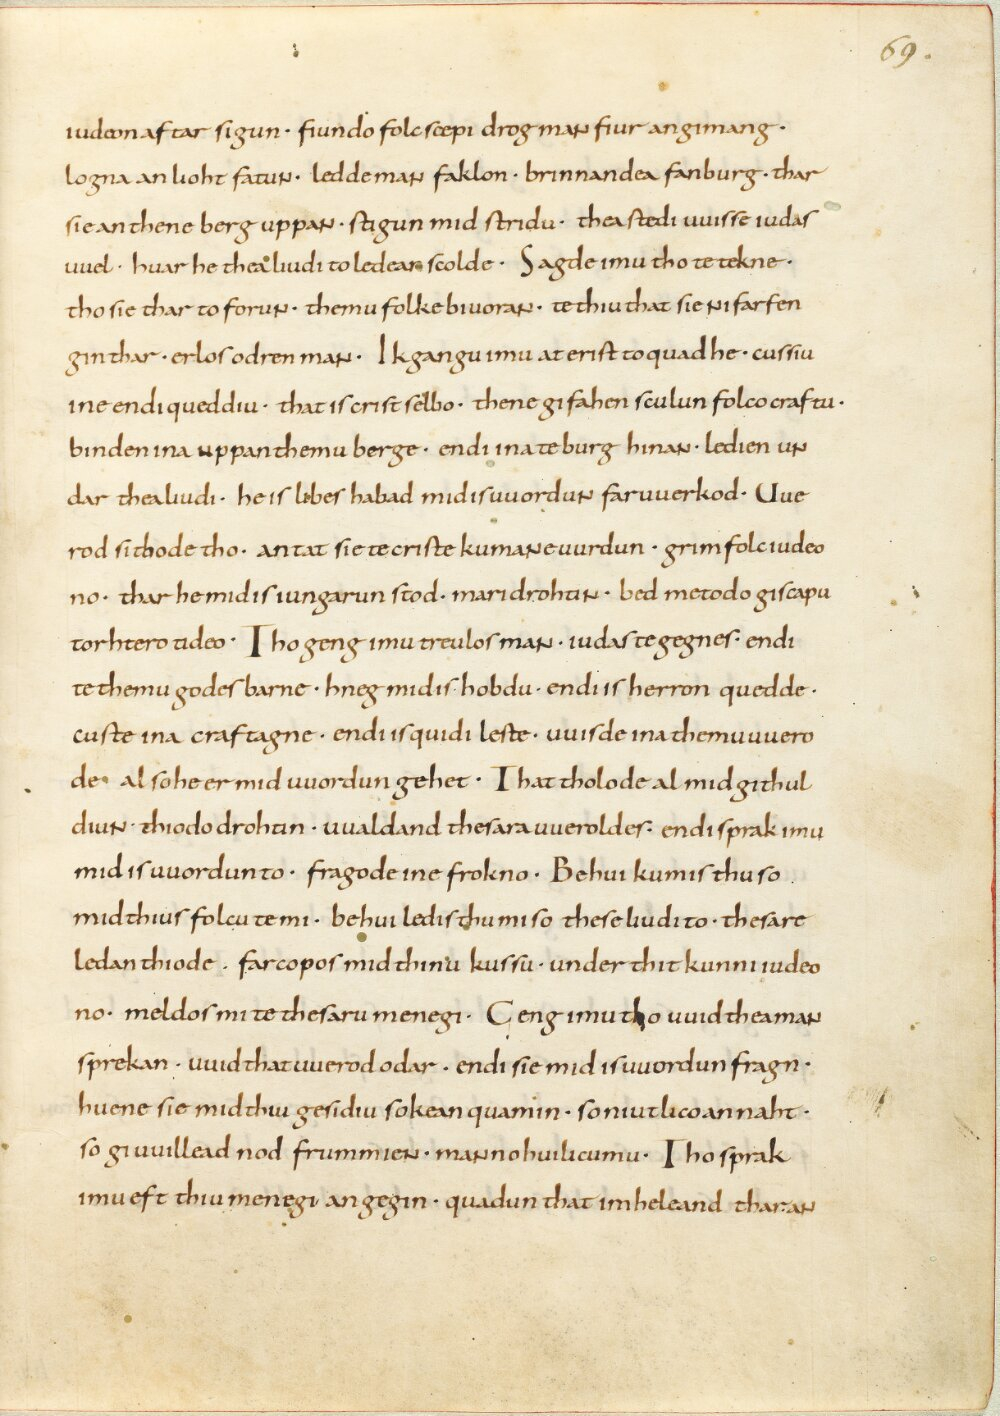 69.
iudeon aftar sigun · fiundo folcscepi drog man fiur an gimang ·
logna an lioht fatun · ledde man faklon · brinnandea fan burg · thar
sie an thene berg uppan · stigun mid stridu · thea stedi uuisse iudas
uuel · huar he thea liudi to ledean scolde · Sagde imu tho te tekne ·
tho sie thar to forun · themu folke biuoran · te thiu that sie ni farfen
gin thar · erlos odren man · Ik gangu imu at erist to quad he · cussiu
ine endi queddiu · that is crist selbo · thene gi fahen sculun folco craftu ·
binden ina uppan themu berge · endi ina te burg hinan · ledien un
dar thea liudi · he is libes habad mid is uuordun faruuerkod · Uue
rod sithode tho · antat sie te criste kumane uurdun · grim folc iudeo
no · thar he mid is iungarun stod · mari drohtin · bed metodo giscapu
torhtero tideo · Tho geng imu treulos man · iudas tegegnes · endi
te themu godes barne · hneg mid is hobdu · endi is herron quedde ·
custe ina craftagne · endi is quidi leste · uuisde ina themu uuero
de · al so he er mid uuordun gehet · That tholode al mid githul
diun · thiodo drohtin · uualdand thesara uueroldes · endi sprak imu
mid is uuordun to · fragode ine frokno · Behui kumis thu so
mid thius folcu te mi · behui ledis thu mi so these liudi to · thesare
ledan thiode · farcopos mid thinu kussu · under thit kunni iudeo
no · meldos mi te thesaru menegi · Geng imu tho uuid thea man
sprekan · uuid that uuerod odar · endi sie mid is uuordun fragn ·
huene sie mid thiu gesidiu sokean quamin · so niutlico an naht ·
so gi uuillead nod frummien · manno huilicumu · Tho sprak
imu eft thiu menegi angegin · quadun that im heleand thar an